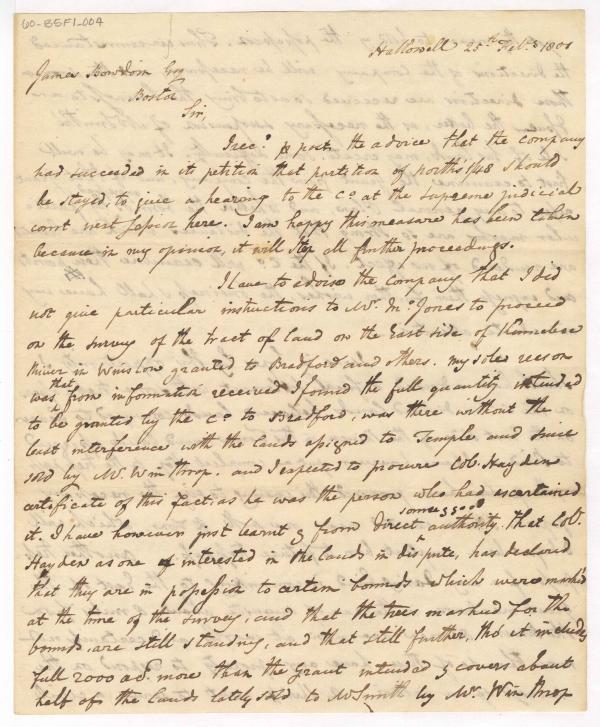 60-BSF1-004
Hallowell 25th Feb.y 1801
James Bowdoin Esq
Boston
Sir,
I rec.d p post, the advice that the company
had succeeded in its petition that partition of north's 1/48 should
be stayed, to give a hearing to the Co at the Supreme judicial
court next session here. I am happy this measure has been taken
because in my opinion, it will stop all further proceedings.
I have to advise the company that I did
not give particular instructions to Mr. Mc Jones to proceed
on the survey of the tract of land on the East side of Kennebec
River in Winslow granted to Bradford and others. my sole reason
was that from information received I found the full quantity intended
to be granted by the Co to Bradford, was there without the
least interference with the lands assigned to Temple and since
sold by Mr. Winthrop. and I expected to procure Col. Hayden
certificate of this fact, as he was the person who had ascertained
it. I have however just learnt & from direct & some good authority that Col.
Hayden as one of interested in the lands in dispute, has declared
that they are in possession to certain bounds which were mark'd
at the time of the survey, and that the trees marked for the
bounds, are still standing, and that still further, tho' it includes
full 2000 ac. more than the Grant intended & covers about
half of the lands lately sold to Mr Smith by Mr. Winthrop